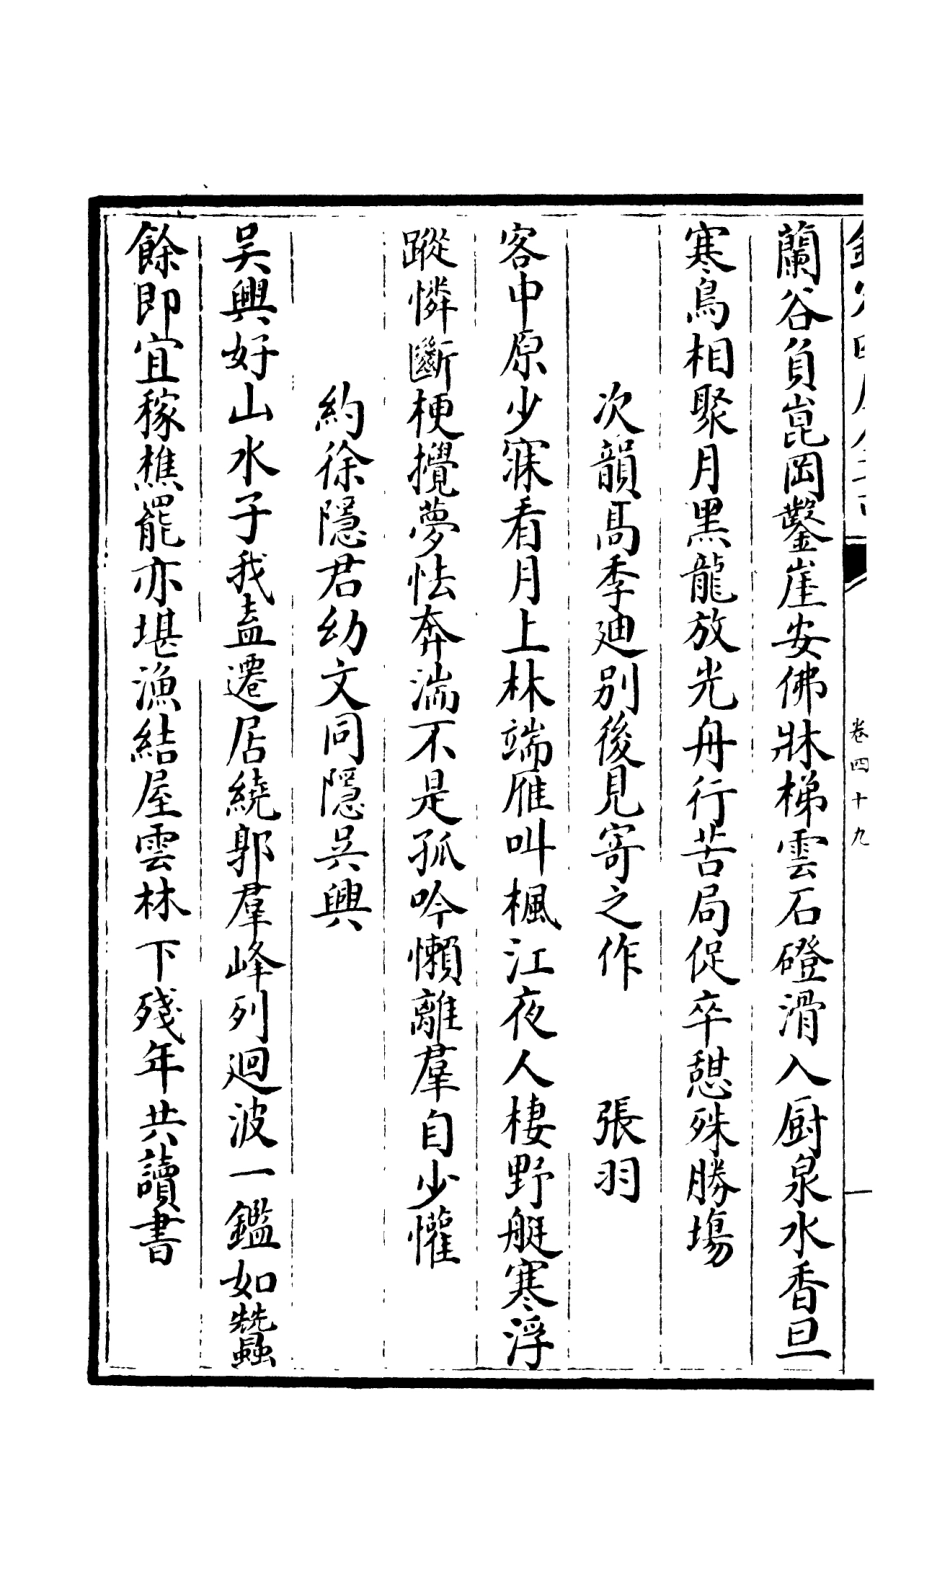 卷四十九
蘭谷負崑岡鑿崖安佛牀梯雲石磴滑入厨泉水香旦
寒鳥相聚月黑龍放光舟行苦局促卒憇殊勝塲
次韻髙季廸别後見寄之作 張羽
客中原少寐看月上林端雁叫楓江夜人棲野艇寒浮
蹤憐斷梗攪夢怯奔湍不是孤吟懶離羣自少懽
約徐隱君幼文同隱吳興
吳興好山水子我盍遷居繞郭羣峰列廻波一鑑如蠶
餘即宜稼樵罷亦堪漁結屋雲林下殘年共讀書